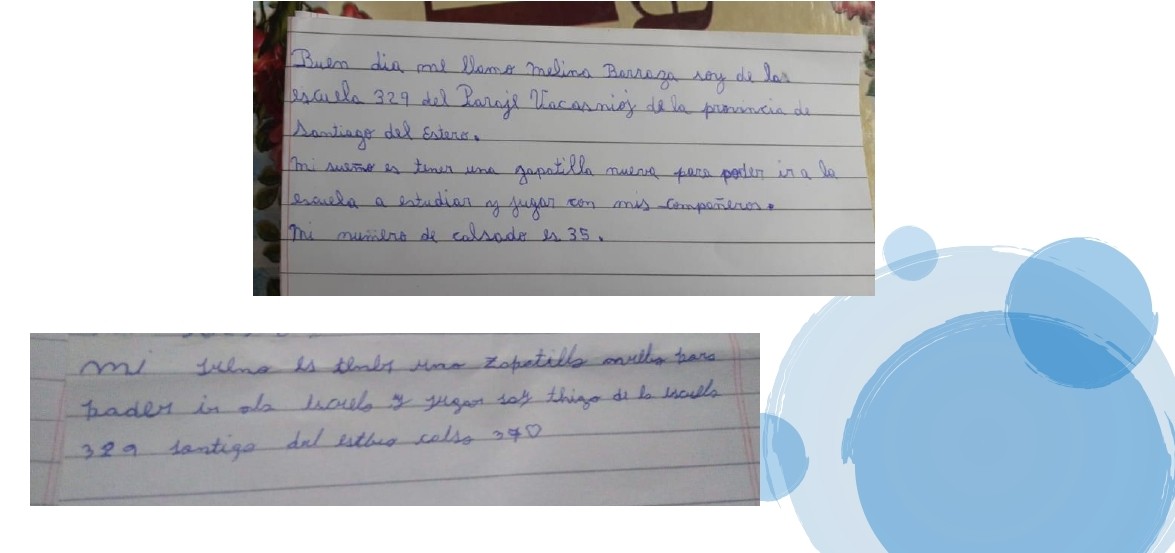 Buen dia me llamo Melina Barraza soy de las
escuela 329 del Paraje Vacasnioj de la provincia de
Santiago del Estero.
Mi sueño es tener una zapatilla nueva para poder ir a la
escuela a estudiar y jugar con mis compañeros.
Mi numero de calsado es 35.
mi sueno es tener una zapatilla para
pader ir ala escuela y jugar soy thiago de la escuela
329 santigo del calso